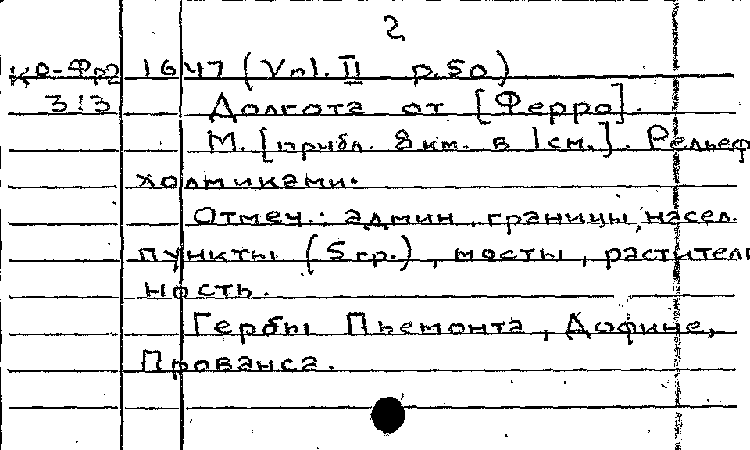 2
Ко-Фр2 1647 (Vol. II p. 50)
313 Долгота от [Ферро].
М. [прибл. 8 км. в 1 см.]. Рельеф
холмиками.
Отмеч.: админ. границы, насел.
пункты (5 гр.), мосты, раститель
ность.
Гербы Пьемонта, Дофине,
Прованса.